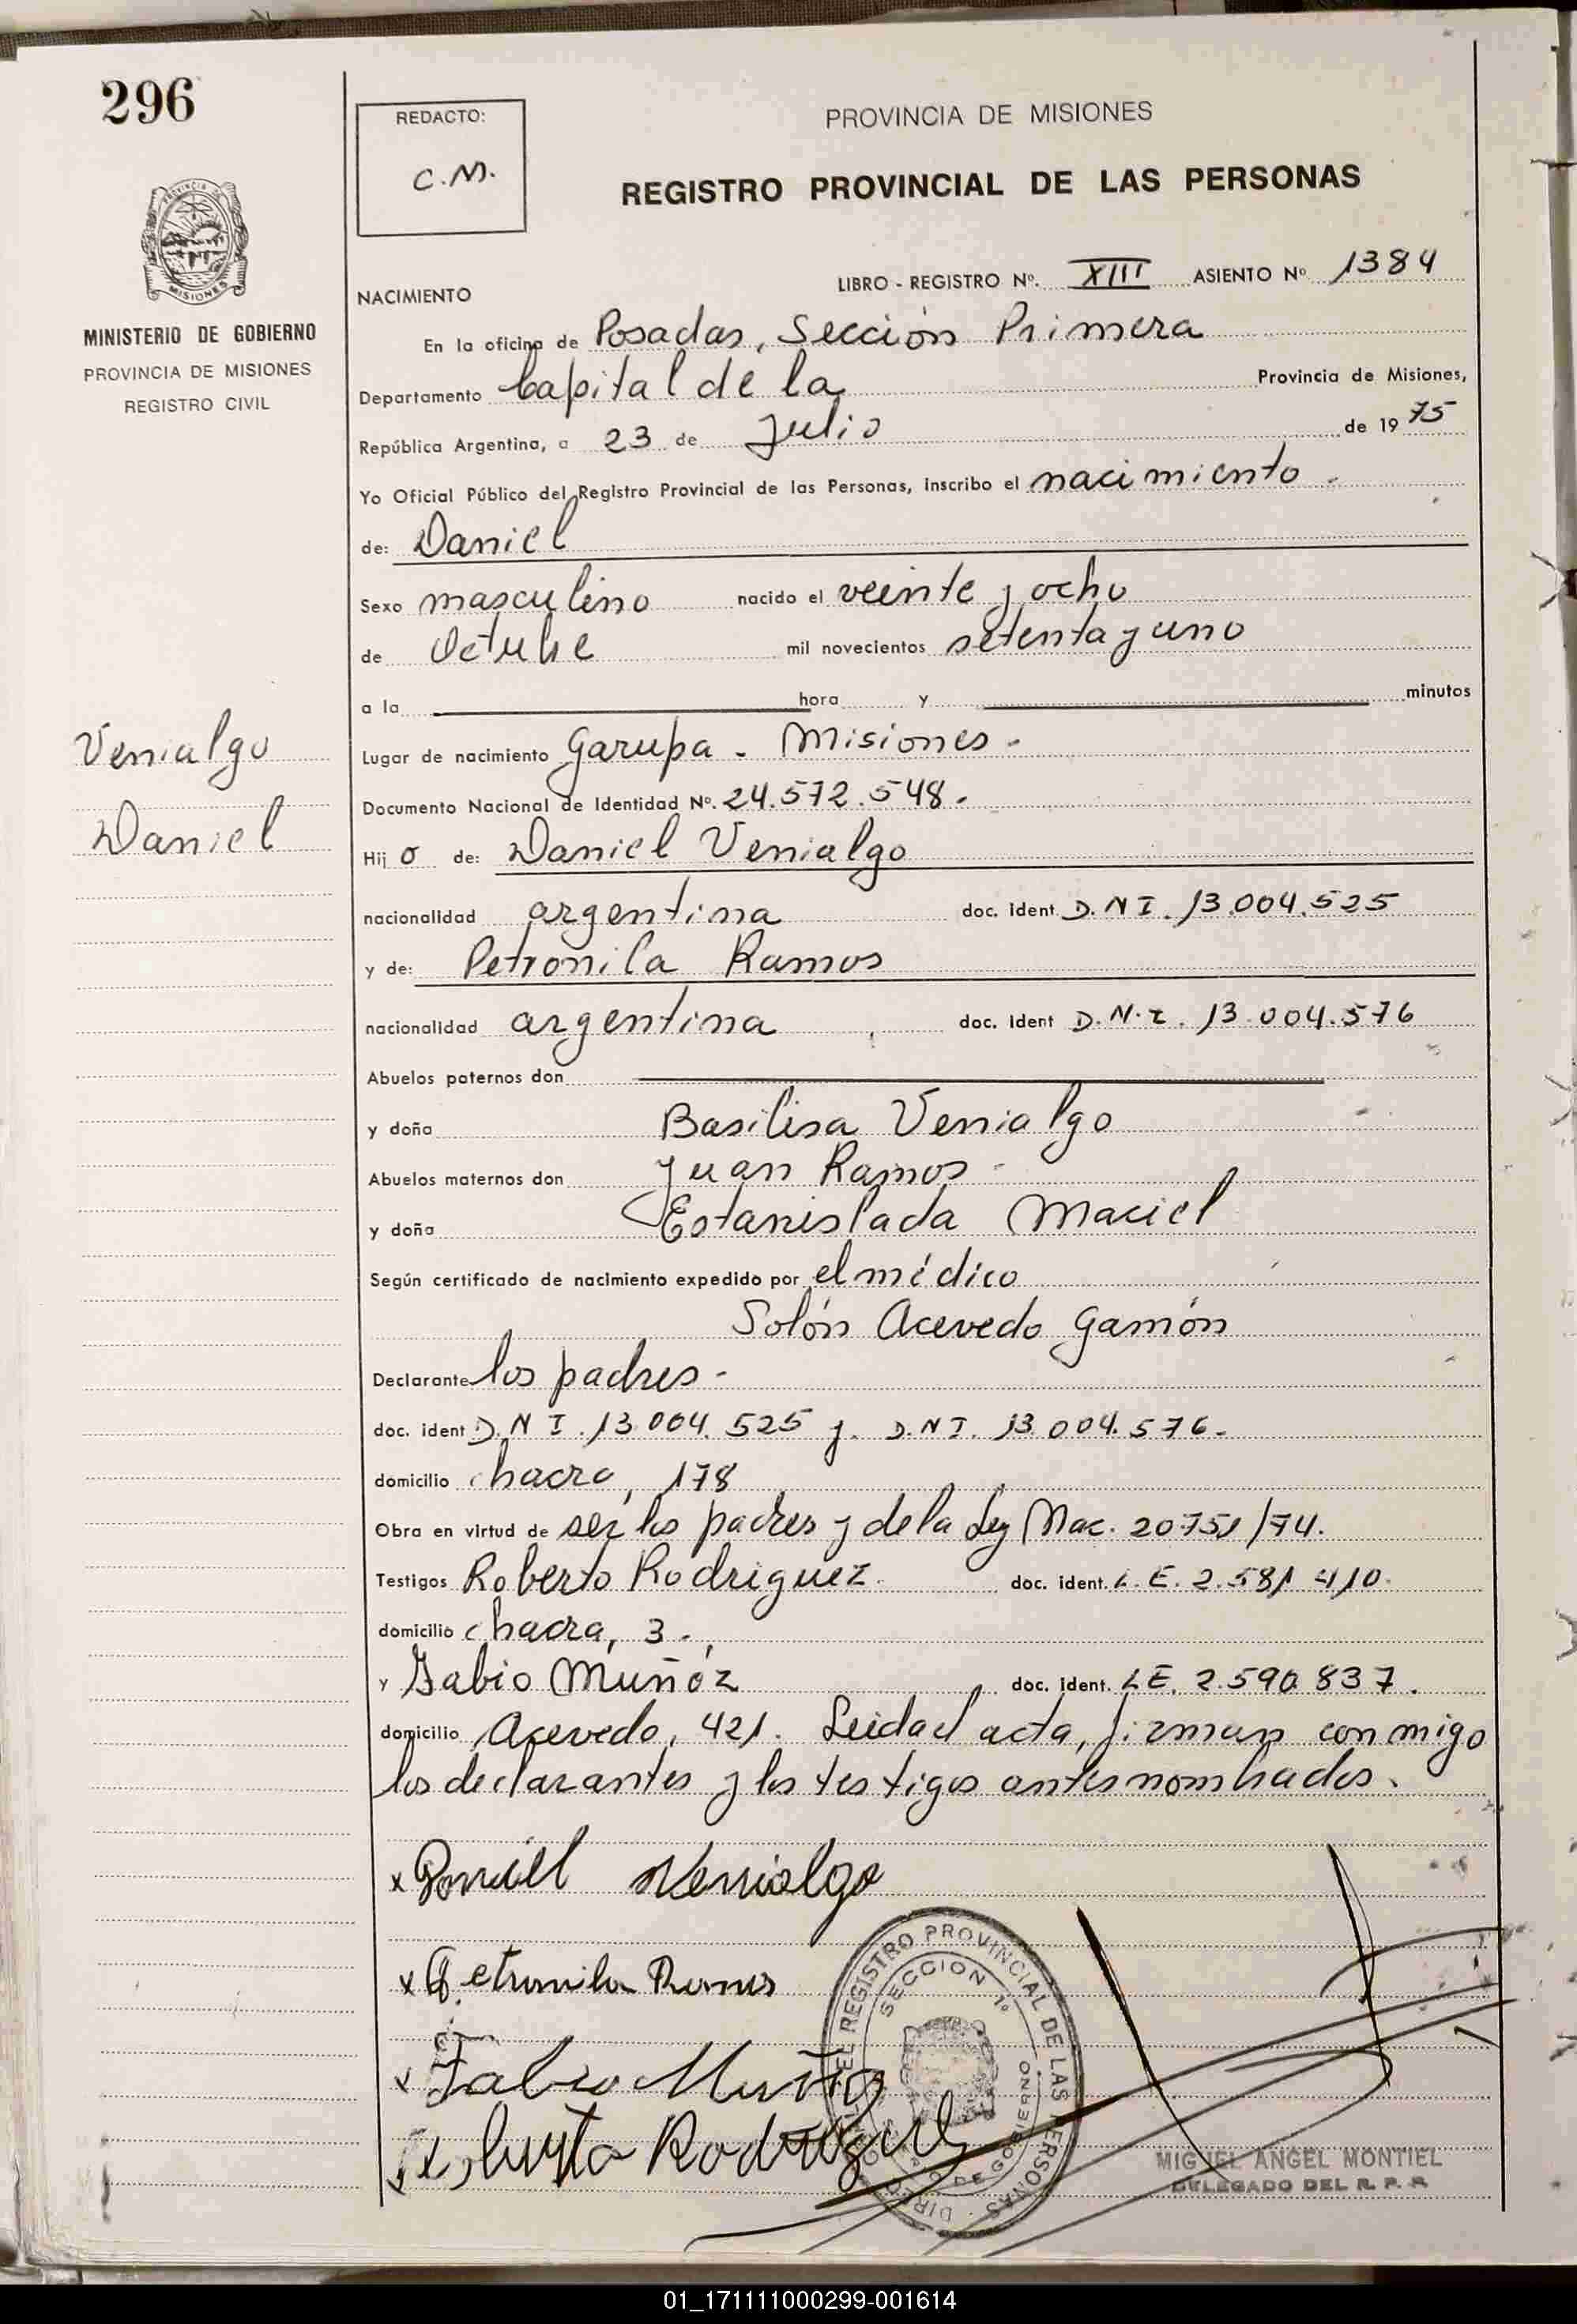 296
REDACTO:
C.M.
PROVINCIA DE MISIONES
REGISTRO PROVINCIAL DE LAS PERSONAS
PROVINCIA DE MISIONES
MINISTERIO DE GOBIERNO
PROVINCIA DE MISIONES
REGISTRO CIVIL
LIBRO - REGISTRO Nº. XIII ASIENTO Nº 1384
NACIMIENTO
En la oficina de Posadas, Sección Primera
Departamento Capital de la Provincia de Misiones,
República Argentina, a 23 de Julio de 1975
Yo Oficial Público del Registro Provincial de las Personas, inscribo el nacimiento.
de: Daniel
Sexo masculino nacido el veinte y ocho
de Octubre mil novecientos setenta y uno
a la hora y minutos
Venialgo
Daniel
Lugar de nacimiento Garupa - Misiones -
Documento Nacional de Identidad Nº. 24.572.548.
Hij o de: Daniel Venialgo
nacionalidad argentina doc. ident D.N I. 13.004.525
y de: Petronila Ramos
nacionalidad argentina doc. ident D.N.I. 13.004.576
Abuelos paternos don
y doña Basilisa Venialgo
Abuelos maternos don Juan Ramos -
y doña Estanislada Maciel
Según certificado de nacimiento expedido por el médico
Solón Acevedo Gamón
Declarante los padres -
doc. ident D.N I. 13.004.525 y. D.N I. 13.004.576.
domicilio chacra, 178
Obra en virtud de ser los padres y de la Ley Nac. 20.751/74.
Testigos Roberto Rodriguez. doc. ident. L.E. 2.581.410.
domicilio chacra, 3.
y Fabio Muñóz doc. ident. L.E. 2.590.837.
domicilio Acevedo, 421. Leida el acta, firman conmigo
los declarantes y los testigos antes nombrados.
x Daniel Venialgo
x Petronila Ramos
x Fabio Muñoz
x Roberto Rodriguez
REGISTRO PROVINCIAL DE LAS PERSONAS
SECCION 1º
DE GOBIERNO
MIGUEL ANGEL MONTIEL
DELEGADO DEL R. P. P.
01_171111000299-001614